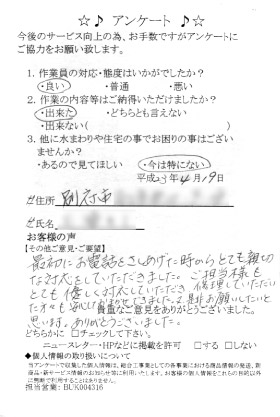 ☆♪ アンケート ♪☆
今後のサービス向上の為、お手数ですがアンケートに
ご協力をお願い致します。
1. 作業員の対応・態度はいかがでしたか？
・良い ・普通 ・悪い
2. 作業の内容等はご納得いただけましたか？
・出来た ・どちらとも言えない
・出来ない( )
3. 他に水まわりや住宅の事でお困りの事はござい
ませんか？
・あるので見てほしい ・今は特にない
平成23年4月19日
ご住所 別府市
ご氏名
お客様の声
【その他ご意見・ご要望】
最初にお電話をさしあげた時からとても親切
な対応をしていただきました。ご担当様も
とても優しく対応していただき 修理していただい
た方も 安心しておまかせできました。又是非お願いしたいと
貴重なご意見をありがとうございました。
思います。ありがとうございました。
どちらかに □チェックして下さい。
ニュースレター・HPなどに掲載を許可 □する □しない
◆個人情報の取り扱いについて
当アンケートで収集した個人情報は、総合工事業としての各事業における商品情報の発送、新
商品・新サービス情報のお知らせ等に利用いたします。お客様の個人情報をこれらの目的以外
に無断で利用することはありません。
担当営業: BUK004316